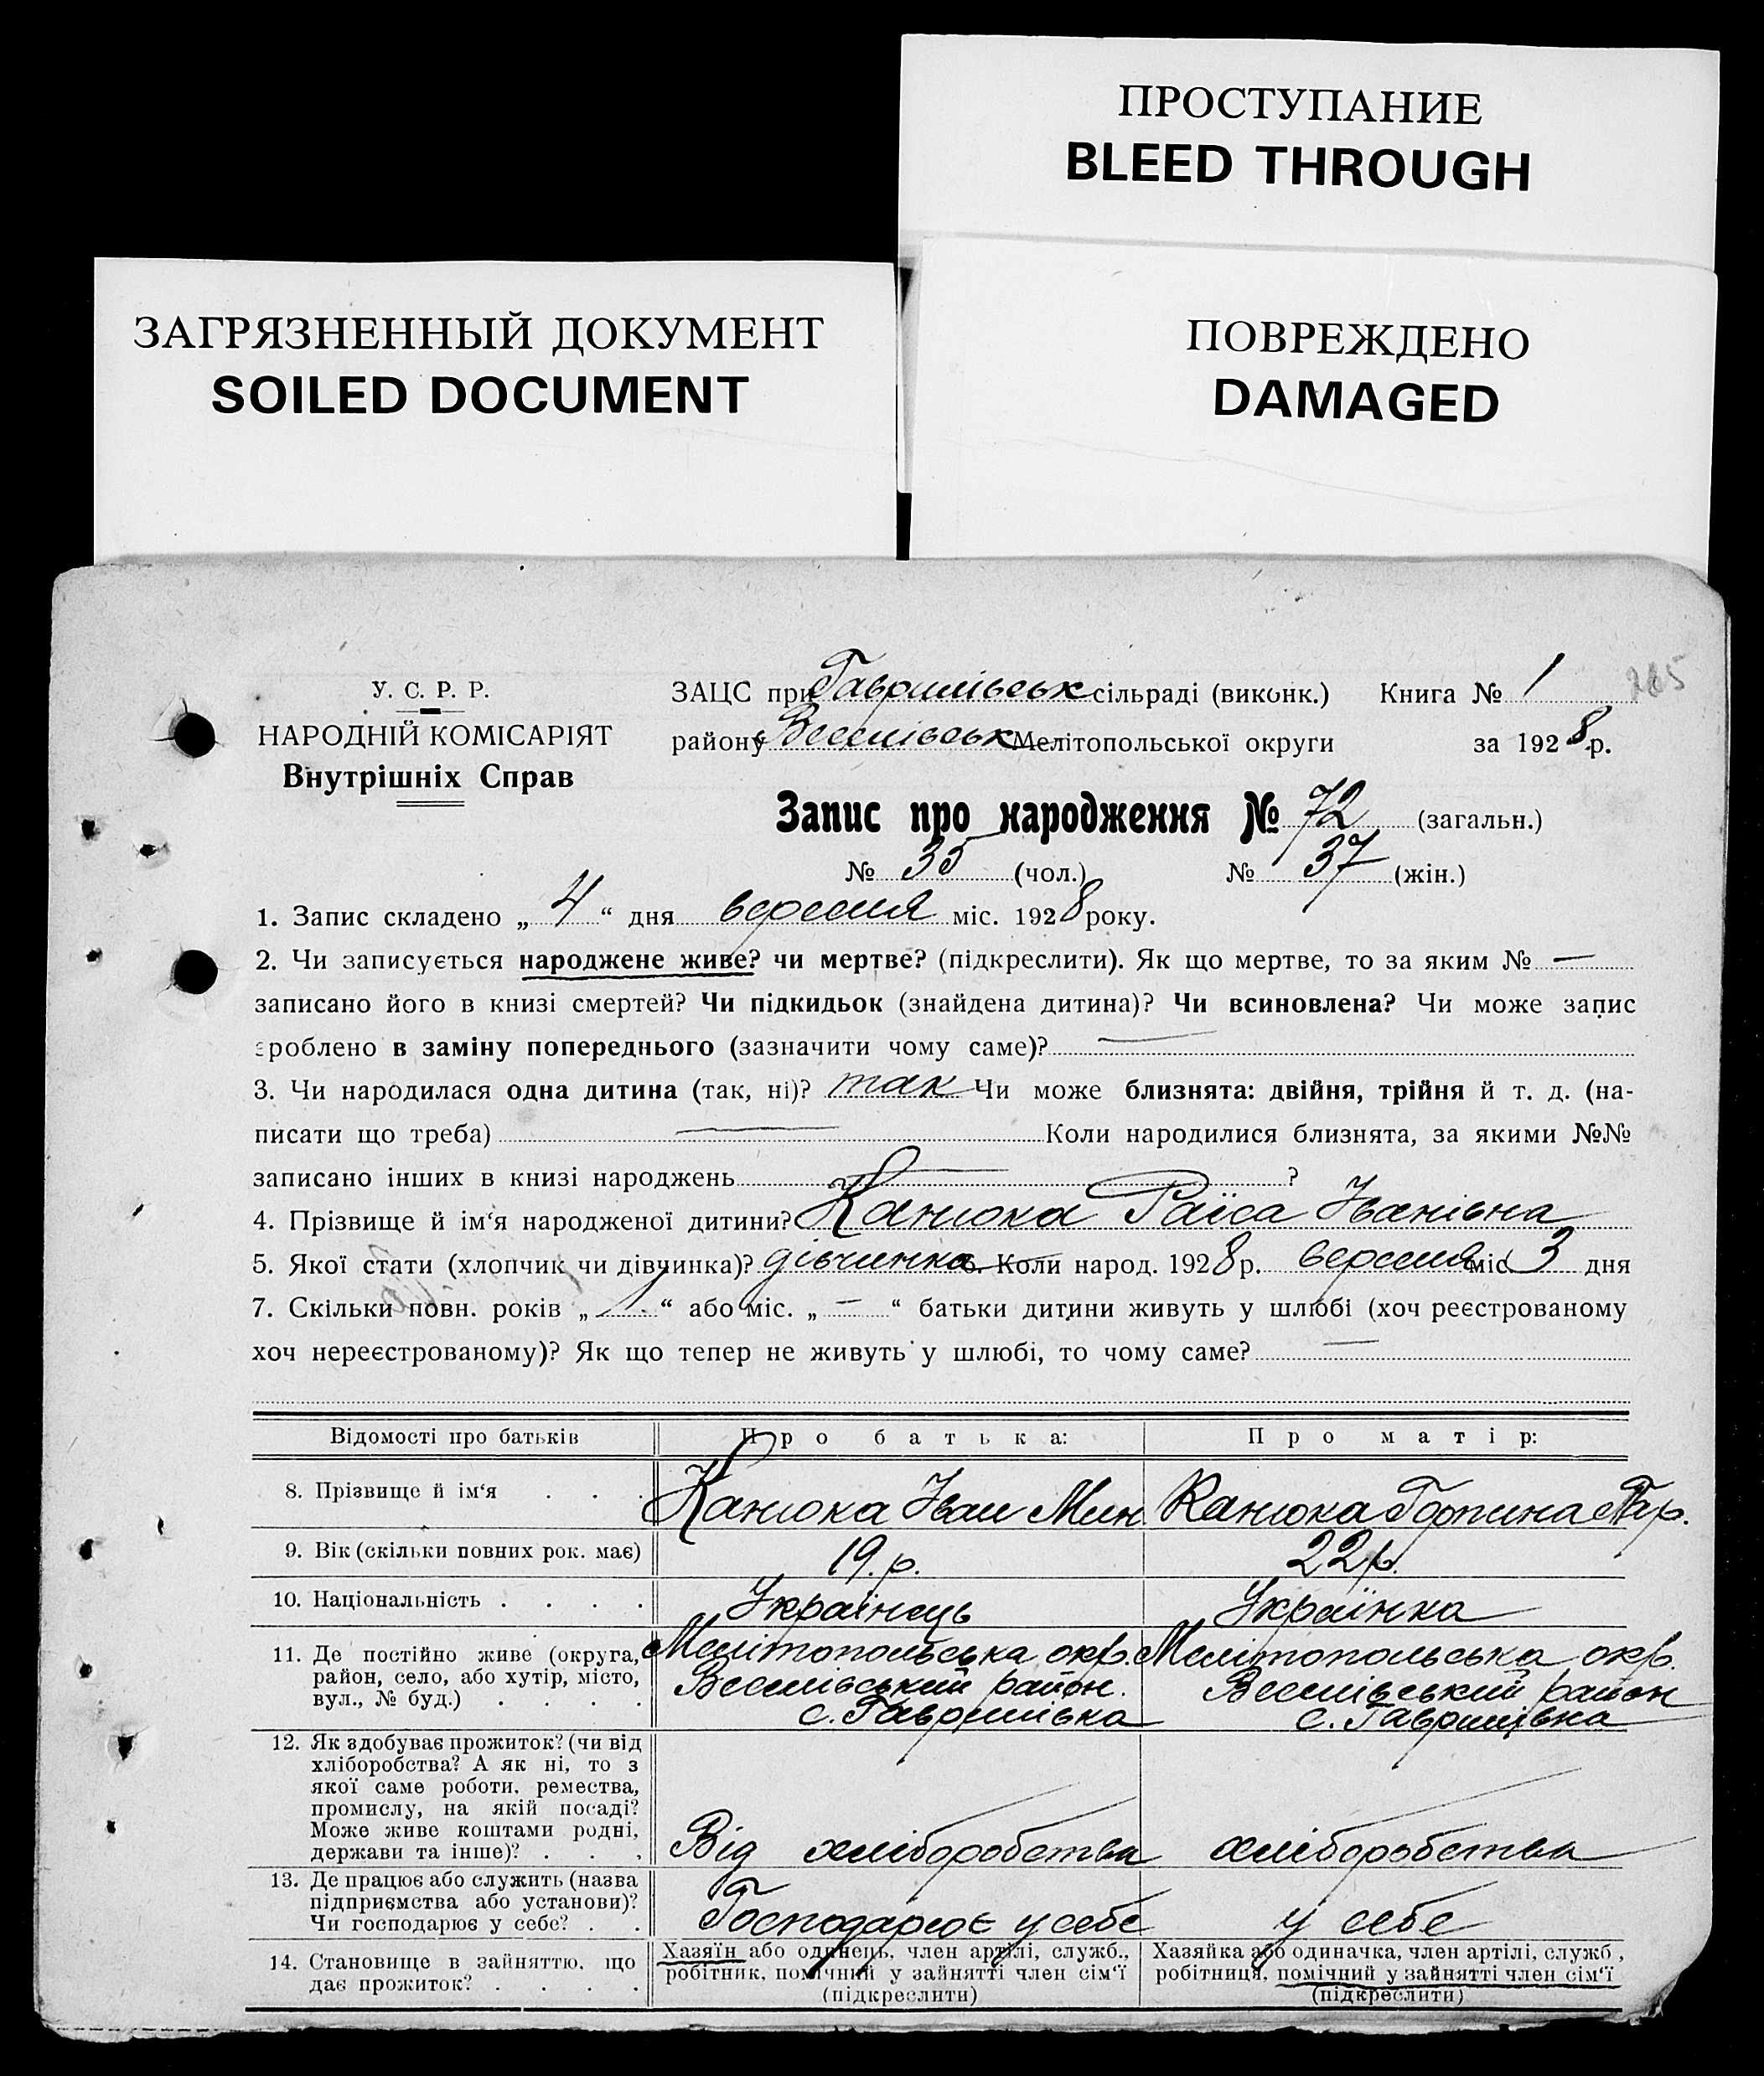 ПРОСТУПАНИЕ
BLEED THROUGH
ЗАГРЯЗНЕННЫЙ ДОКУМЕНТ
SOILED DOCUMENT
ПОВРЕЖДЕНО
DAMAGED
265
У. С. Р. Р.
НАРОДНІЙ КОМІСАРІЯТ
Внутрішніх Справ
ЗАЦС при Гаврилівськ сільраді (виконк.) Книга № 1
району Веселівськ Мелітопольської округи за 1928 р.
Запис про народження № 72 (загальн.)
№ 35 (чол.) № 37 (жін.)
1. Запис складено „ 4 “ дня вересня міс. 1928 року.
2. Чи записується народжене живе? чи мертве? (підкреслити). Як що мертве, то за яким № —
записано його в книзі смертей? Чи підкидьок (знайдена дитина)? Чи всиновлена? Чи може запис
зроблено в заміну попереднього (зазначити чому саме)? —
3. Чи народилася одна дитина (так, ні)? так Чи може близнята: двійня, трійня й т. д. (на-
писати що треба) — Коли народилися близнята, за якими №№
записано інших в книзі народжень — ?
4. Прізвище й ім‘я народженої дитини? Канюка Раїса Іванівна
5. Якої стати (хлопчик чи дівчинка)? дівчинка 6. Коли народ. 1928 р. вересня міс 3 дня
7. Скільки повн. років „ 1 “ або міс. „ — “ батьки дитини живуть у шлюбі (хоч реєстрованому
хоч нереєстрованому)? Як що тепер не живуть у шлюбі, то чому саме? —
Відомості про батьків Про батька: Про матір:
8. Прізвище й ім‘я . . . Канюка Іван Мин Канюка Горпина
9. Вік (скільки повних рок. має) 19 р. 22 р.
10. Національність . . . . Українець Українка
11. Де постійно живе (округа,
район, село, або хутір, місто,
вул., № буд.) . . . .
Мелітопольська окр.
Веселівський район.
с. Гаврилівка
Мелітопольська окр.
Веселівський район
с. Гаврилівка
12. Як здобуває прожиток? (чи від
хліборобства? А як ні, то з
якої саме роботи, ремества,
промислу, на якій посаді?
Може живе коштами родні,
держави та інше)? . . .
Від хліборобства хліборобства
13. Де працює або служить (назва
підприємства або установи)?
Чи господарює у себе? . .
Господарює у себе у себе
14. Становище в зайняттю, що
дає прожиток? . . . .
Хазяїн або одинець, член артілі, служб.,
робітник, помічний у зайнятті член сім‘ї
(підкреслити)
Хазяйка або одиначка, член артілі, служб.,
робітниця, помічний у зайнятті член сім‘ї
(підкреслити)